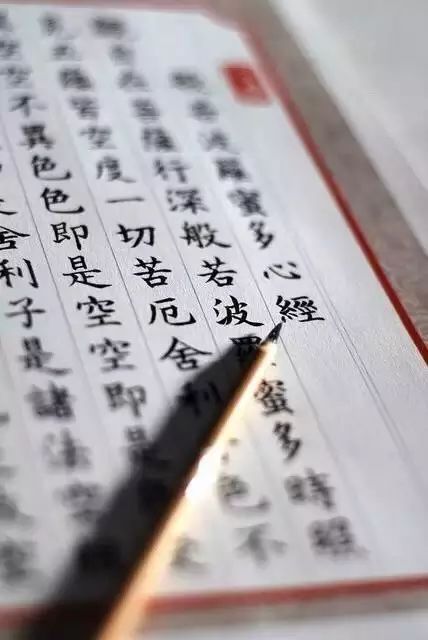 般若波羅蜜多心經
觀自在菩薩行深般若波羅蜜多時照
見五蘊皆空度一切苦厄舍利色不
空空不異色色即是空空即是
舍利子是諸法空